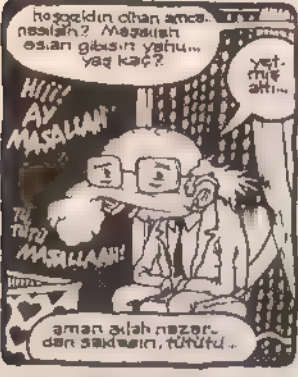 hoşgeldin cihan amca..
nasılsın? Maşallah
aslan gibisin yahu...
yaş kaç?
yet-
miş
altı...
HİİİÇ!
AY
MAŞALLAH!
TÜ
TÜTÜ
MAŞALLAAH!
aman allah nazar-
dan saklasın, tütütü...